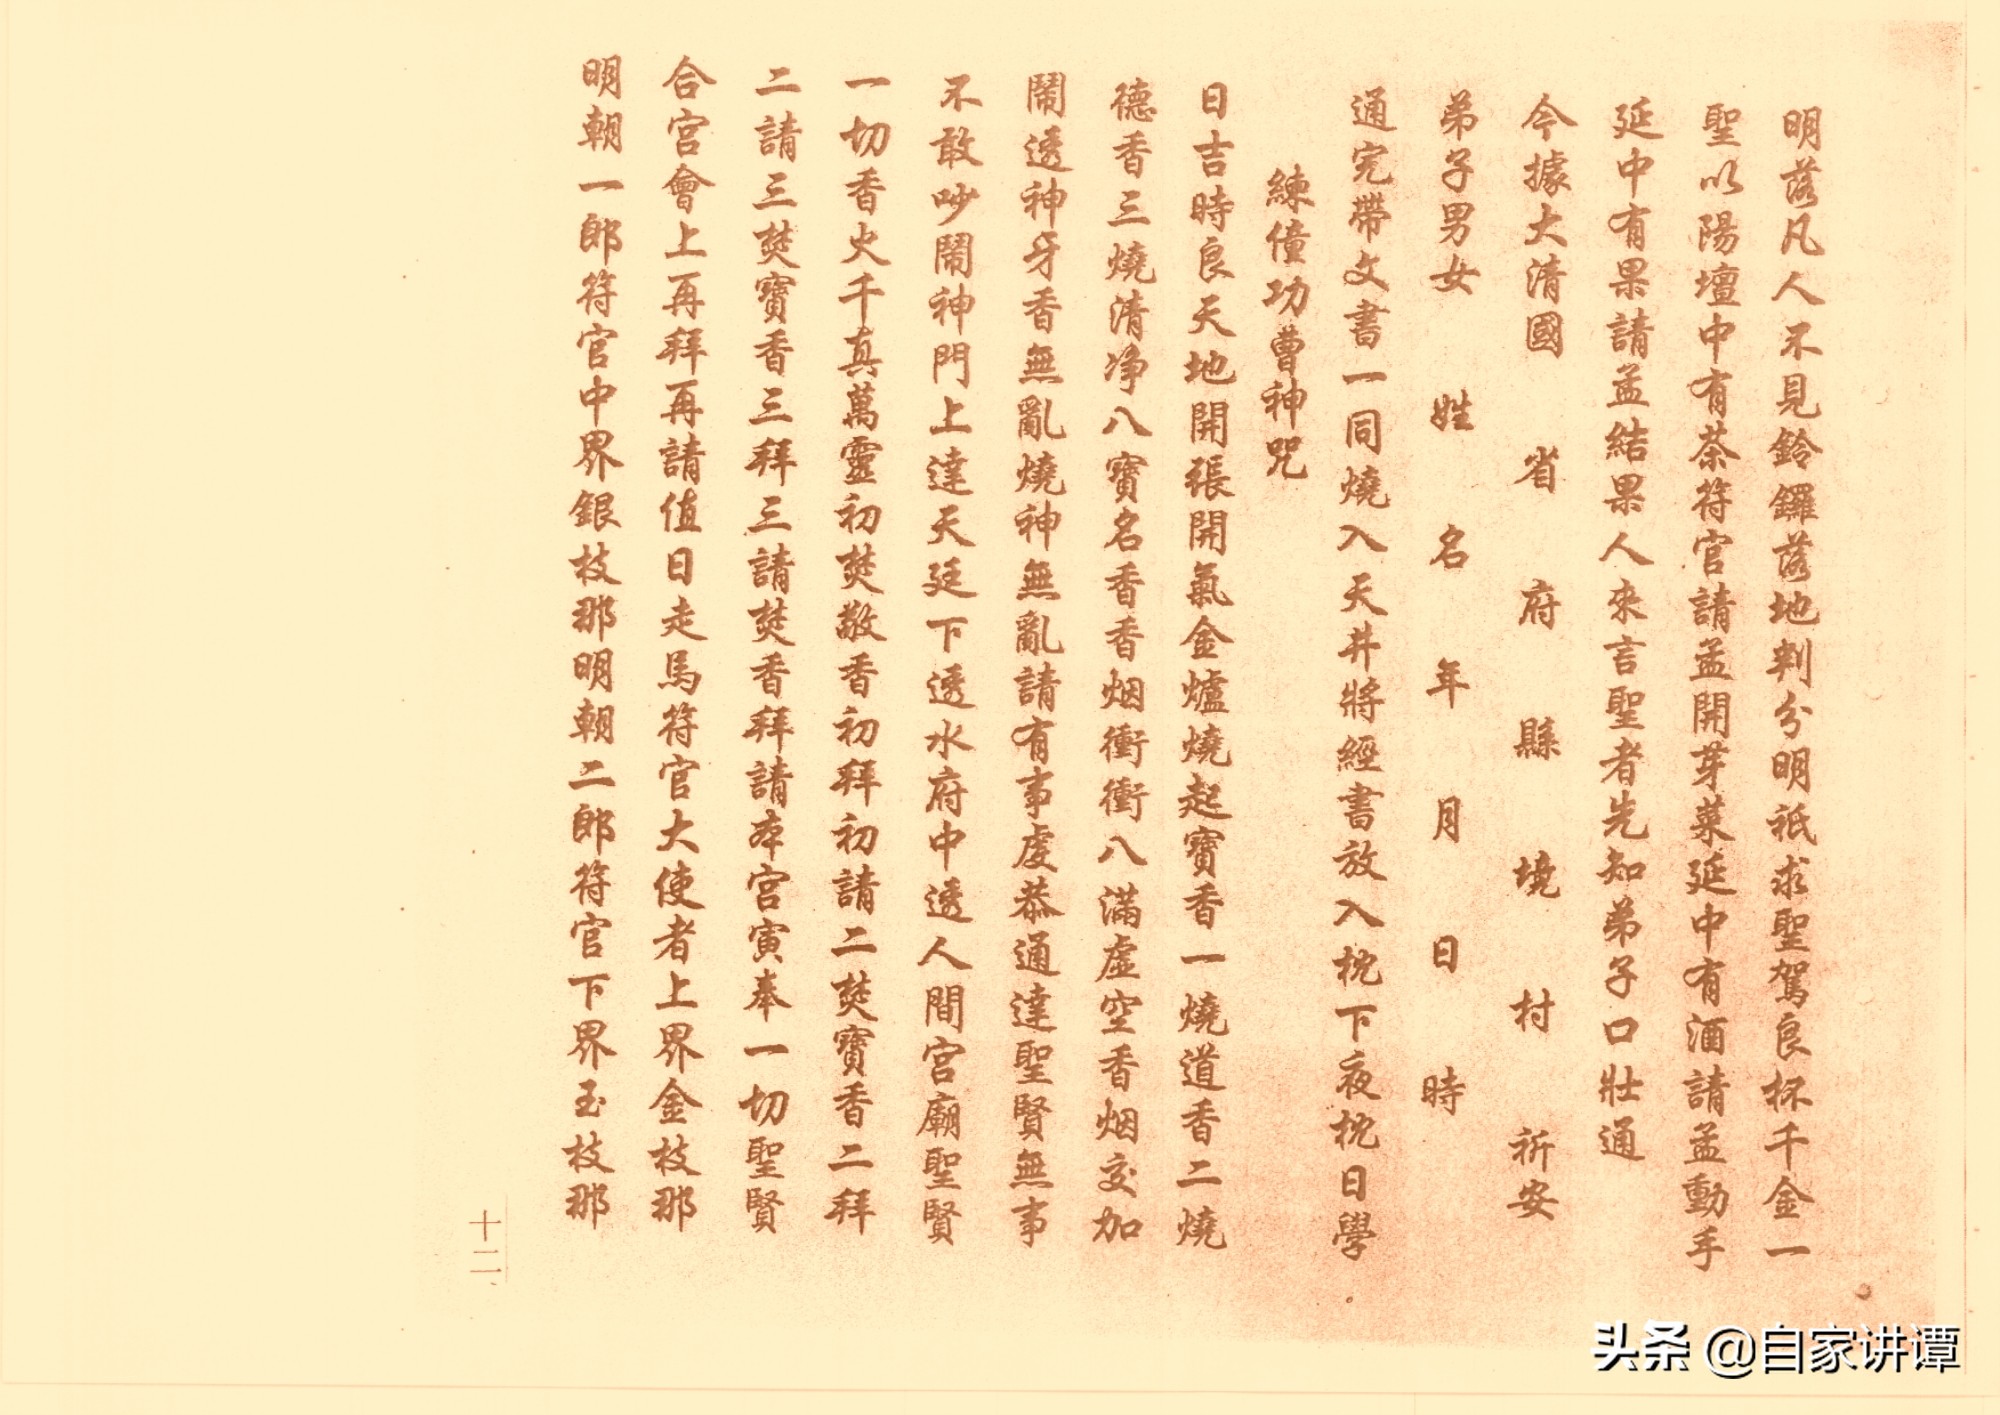 明落凡人不見鈴鑼落地判分明祇求聖駕良杯千金一
聖以陽壇中有茶符官請孟開芽菜延中有酒請孟動手
延中有果請孟結果人來言聖者先知弟子口壯通
今據大清國 省 府 縣 境 村 祈安
弟子男女 姓 名 年 月 日 時
通完帶文書一同燒入天井將經書放入枕下夜枕日學
練僮功曹神咒
日吉時良天地開張開氣金爐燒起寶香一燒道香二燒
德香三燒清净八寶名香香烟衝衝八滿虛空香烟交加
鬧透神牙香無亂燒神無亂請有事虔恭通達聖賢無事
不敢吵鬧神門上達天廷下透水府中透人間宮廟聖賢
一切香火千真萬靈初焚敬香初拜初請二焚寶香二拜
二請三焚寶香三拜三請焚香拜請本宮寅奉一切聖賢
合宮會上再拜再請值日走馬符官大使者上界金枝那
明朝一郎符官中界銀枝那明朝二郎符官下界玉枝那
十二、
头条 @自家讲谭